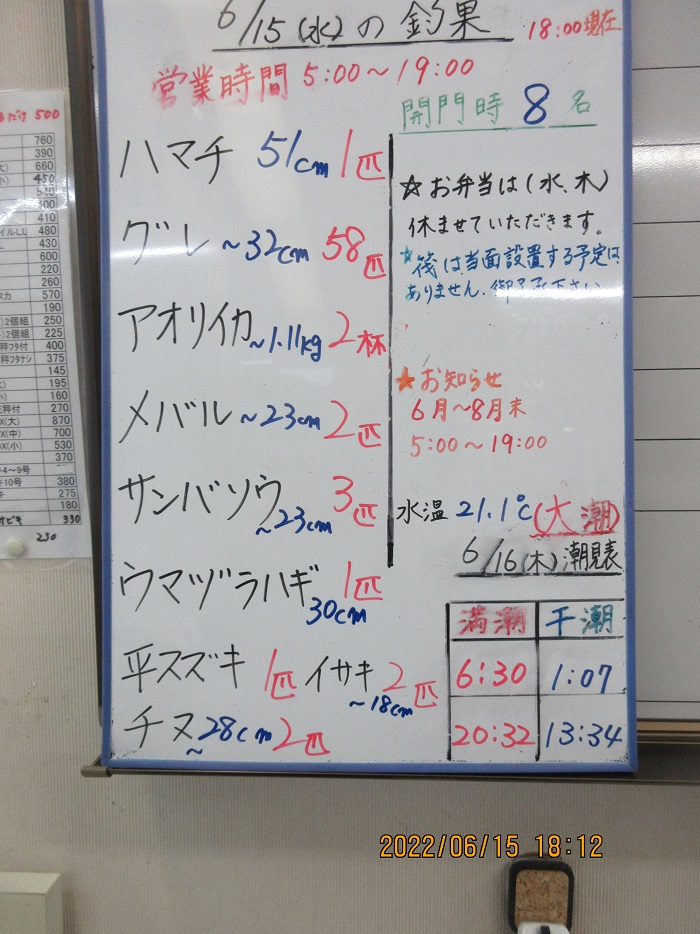 6/15(水)の釣果
18:00現在
営業時間 5:00~19:00
開門時 8名
ハマチ 51cm 1匹
グレ ~32cm 58匹
アオリイカ ~1.11kg 2杯
メバル ~23cm 2匹
サンバソウ ~23cm 3匹
ウマヅラハギ 30cm 1匹
平スズキ 1匹 イサキ ~18cm 2匹
チヌ ~28cm 2匹
☆お弁当は(水、木)
休ませていただきます。
☆筏は当面設置する予定は
ありません。御了承下さい
★お知らせ
6月~8月末
5:00~19:00
水温 21.1℃ (大潮)
6/16(木)潮見表
満潮 干潮
6:30 1:07
20:32 13:34
るだけ 500
760
390
660
450
540
400
410
イルLL 480
430
600
220
260
スカ 570
190
250
)2個組 225
秤フタ付 400
秤フタナシ 375
145
195
160
秤付 270
X(大) 870
X(中) 700
X(小) 530
370
4~9号
10号 380
275
180
オビキ 330
230
2022/06/15 18:12